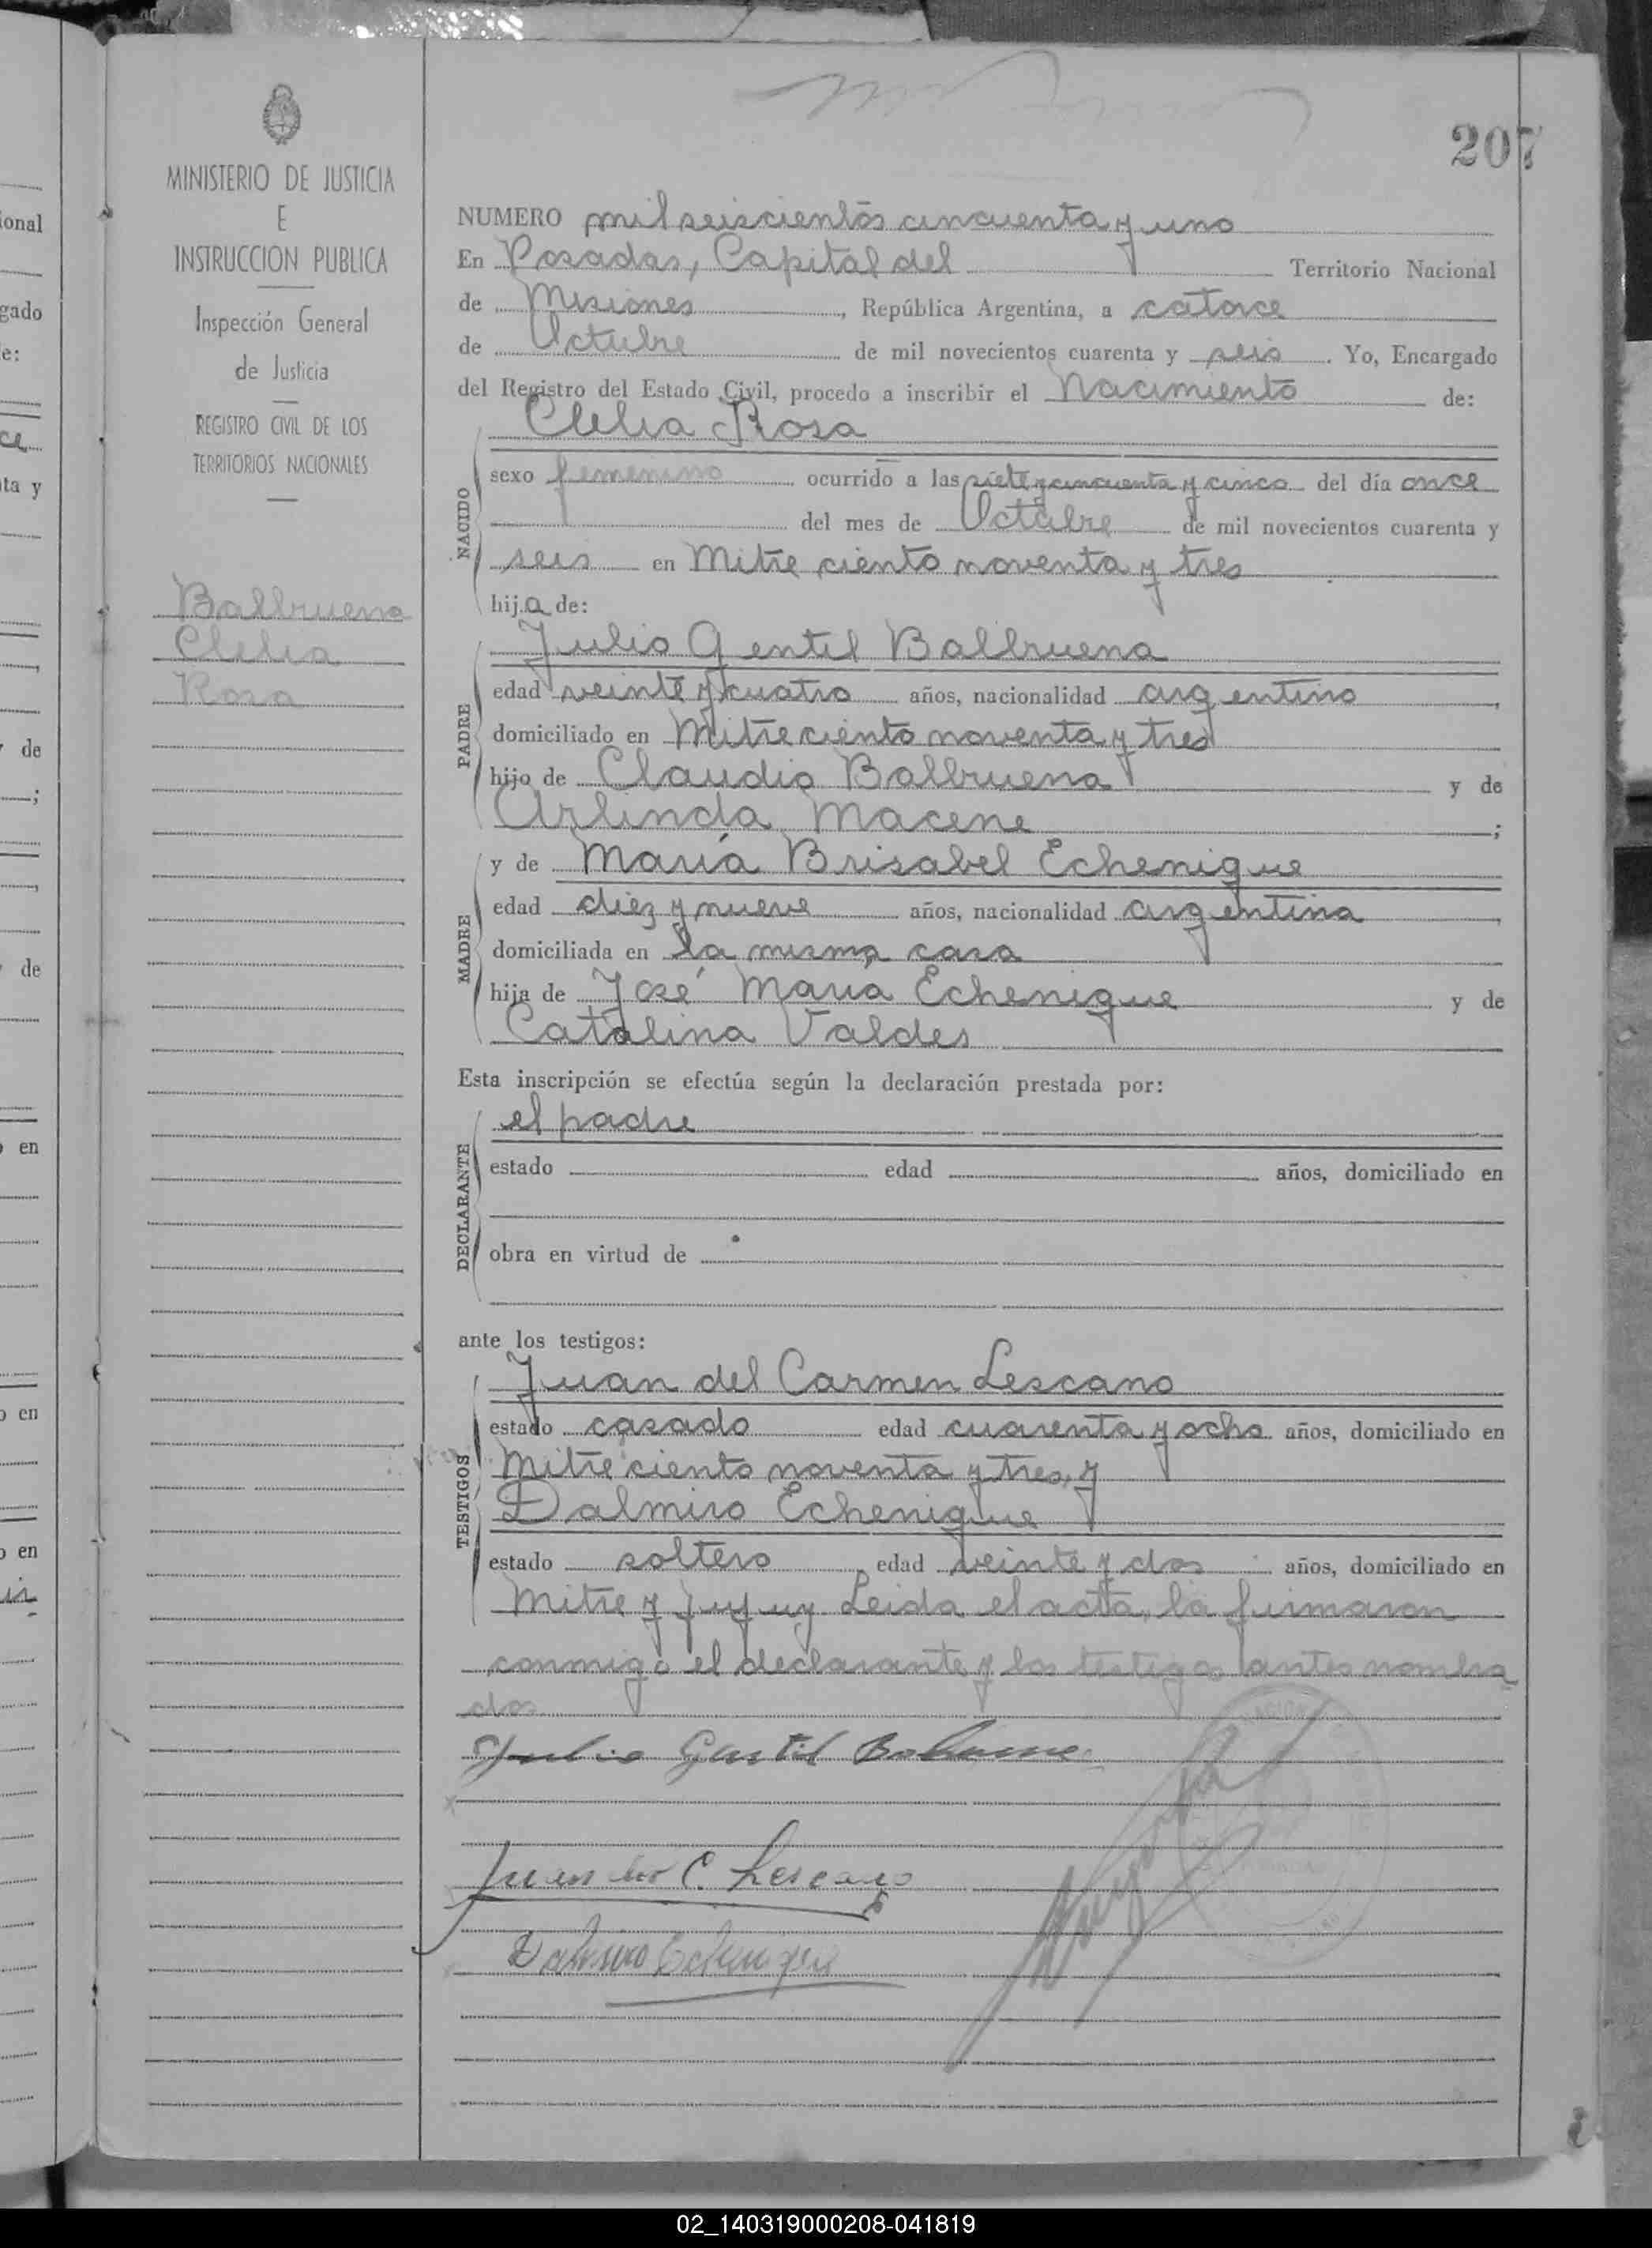 207
MINISTERIO DE JUSTICIA
E
INSTRUCCION PUBLICA
Inspección General
de Justicia
REGISTRO CIVIL DE LOS
TERRITORIOS NACIONALES
Balbruena
Clelia
Rosa
NUMERO mil seiscientos cincuenta y uno
En Posadas, Capital del Territorio Nacional
de Misiones, República Argentina, a catorce
de Octubre de mil novecientos cuarenta y seis. Yo, Encargado
del Registro del Estado Civil, procedo a inscribir el Nacimiento de:
NACIDO
Clelia Rosa
sexo femenino ocurrido a las siete y cincuenta y cinco del día once
del mes de Octubre de mil novecientos cuarenta y
seis en Mitre ciento noventa y tres
hija de:
PADRE
Julio Gentil Balbruena
edad veinte y cuatro años, nacionalidad argentino,
domiciliado en Mitre ciento noventa y tres
hijo de Claudio Balbruena y de
Arlinda Macene;
MADRE
y de María Brisabel Echenique
edad diez y nueve años, nacionalidad argentina,
domiciliada en la misma casa
hija de José María Echenique y de
Catalina Valdes
Esta inscripción se efectúa según la declaración prestada por:
DECLARANTE
el padre
estado edad años, domiciliado en
obra en virtud de
ante los testigos:
TESTIGOS
Juan del Carmen Lescano
estado casado edad cuarenta y ocho años, domiciliado en
Mitre ciento noventa y tres, y
Dalmiro Echenique
estado soltero edad veinte y dos años, domiciliado en
Mitre y Jujuy Leida el acta, la firmaron
conmigo el declarante y los testigos antes nombra
dos
Julio Gentil
Juan del C. Lescano
Dalmiro Echenique
02_140319000208-041819